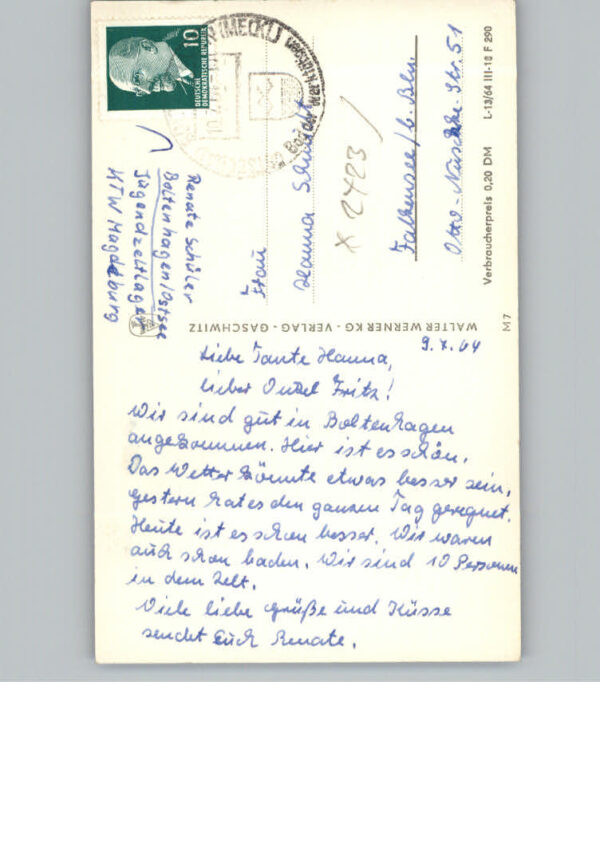 Liebe Tante Hanna,
lieber Onkel Fritz!
Wir sind gut in Boltenhagen
angekommen. Hier ist es schön.
Das Wetter könnte etwas besser sein.
Gestern hat es den ganzen Tag geregnet.
Heute ist es schon besser. Wir waren
auch schon baden. Wir sind 10 Personen
in dem Zelt.
Viele liebe Grüße und Küsse
sendet Euch Renate.
WALTER WERNER KG · VERLAG · GASCHWITZ
M 7
Renate Schüler
Boltenhagen/Ostsee
Jugendzeltlager
KTW Magdeburg
10
DEUTSCHE
DEMOKRATISCHE REPUBLIK
(MECKL)
Bad der Werk
Frau
Hanna Schmidt
X 2423
Falkensee/b. Bln.
Otto-Nuschke-Str. 51
Verbraucherpreis 0,20 DM
L-13/64 III-18 F 290